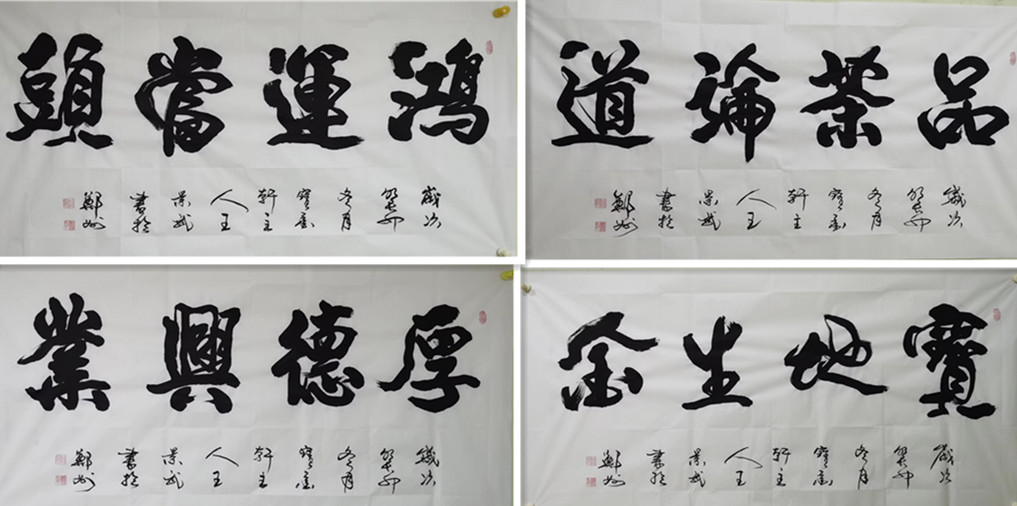 鴻運當頭
歲次
癸卯
冬月
寶
軒主
人王
景武
書於
鄭州
品茶論道
歲次
癸卯
冬月
寶
軒主
人王
景武
書於
鄭州
厚德興業
歲次
癸卯
冬月
寶
軒主
人王
景武
書於
鄭州
寶地生金
歲次
癸卯
冬月
寶
軒主
人王
景武
書於
鄭州